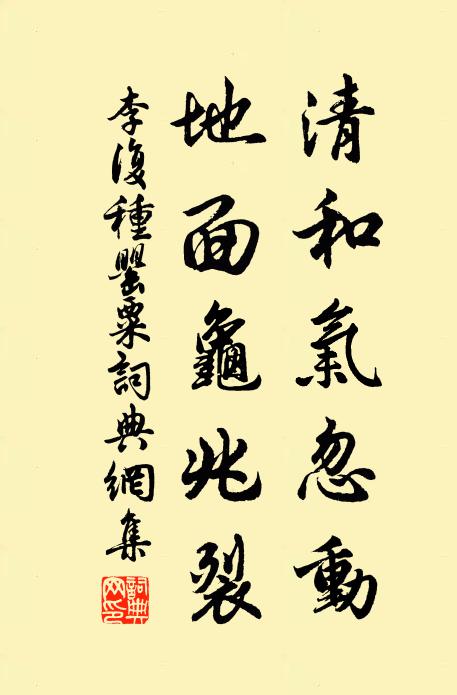 清和氣忽動
地面龜兆裂
李復種罌粟詞典網集